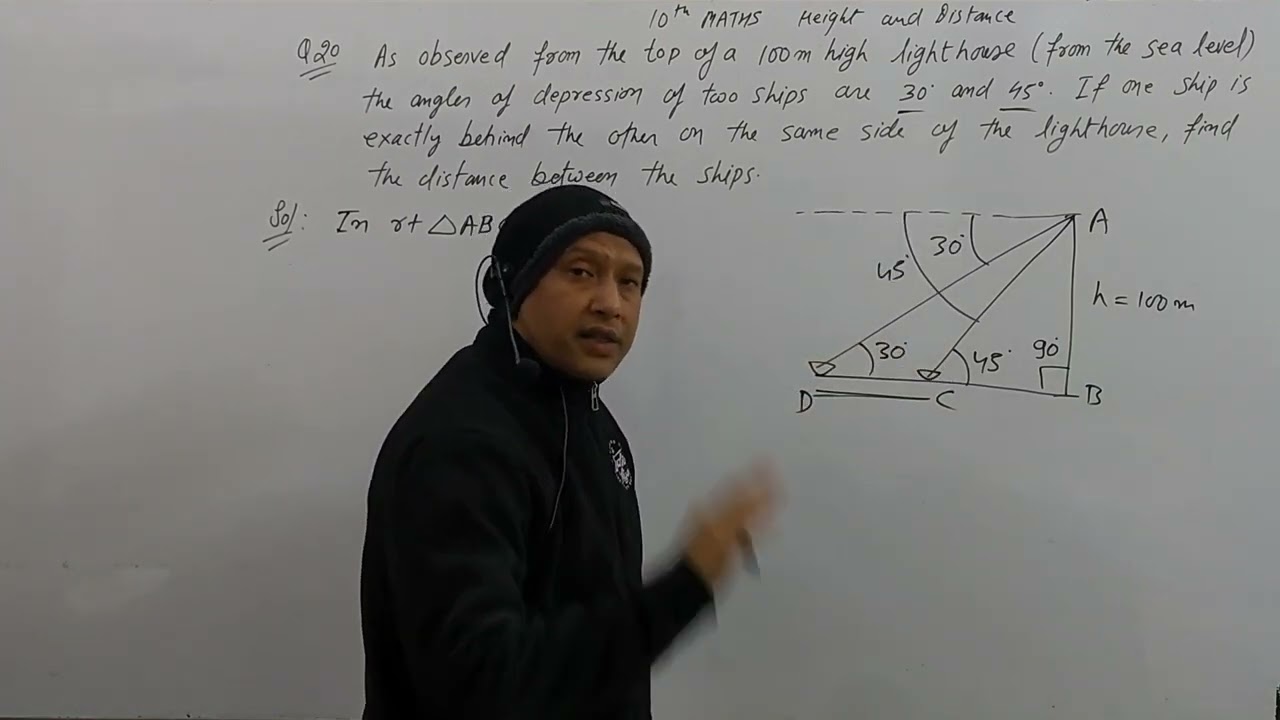 10th MATHS Height and Distance
Q20 As observed from the top of a 100m high lighthouse (from the sea level)
the angles of depression of two ships are 30° and 45°. If one ship is
exactly behind the other on the same side of the lighthouse, find
the distance between the ships.
Sol: In rt △AB
A
30°
45°
h = 100m
30°
45°
90°
D
C
B